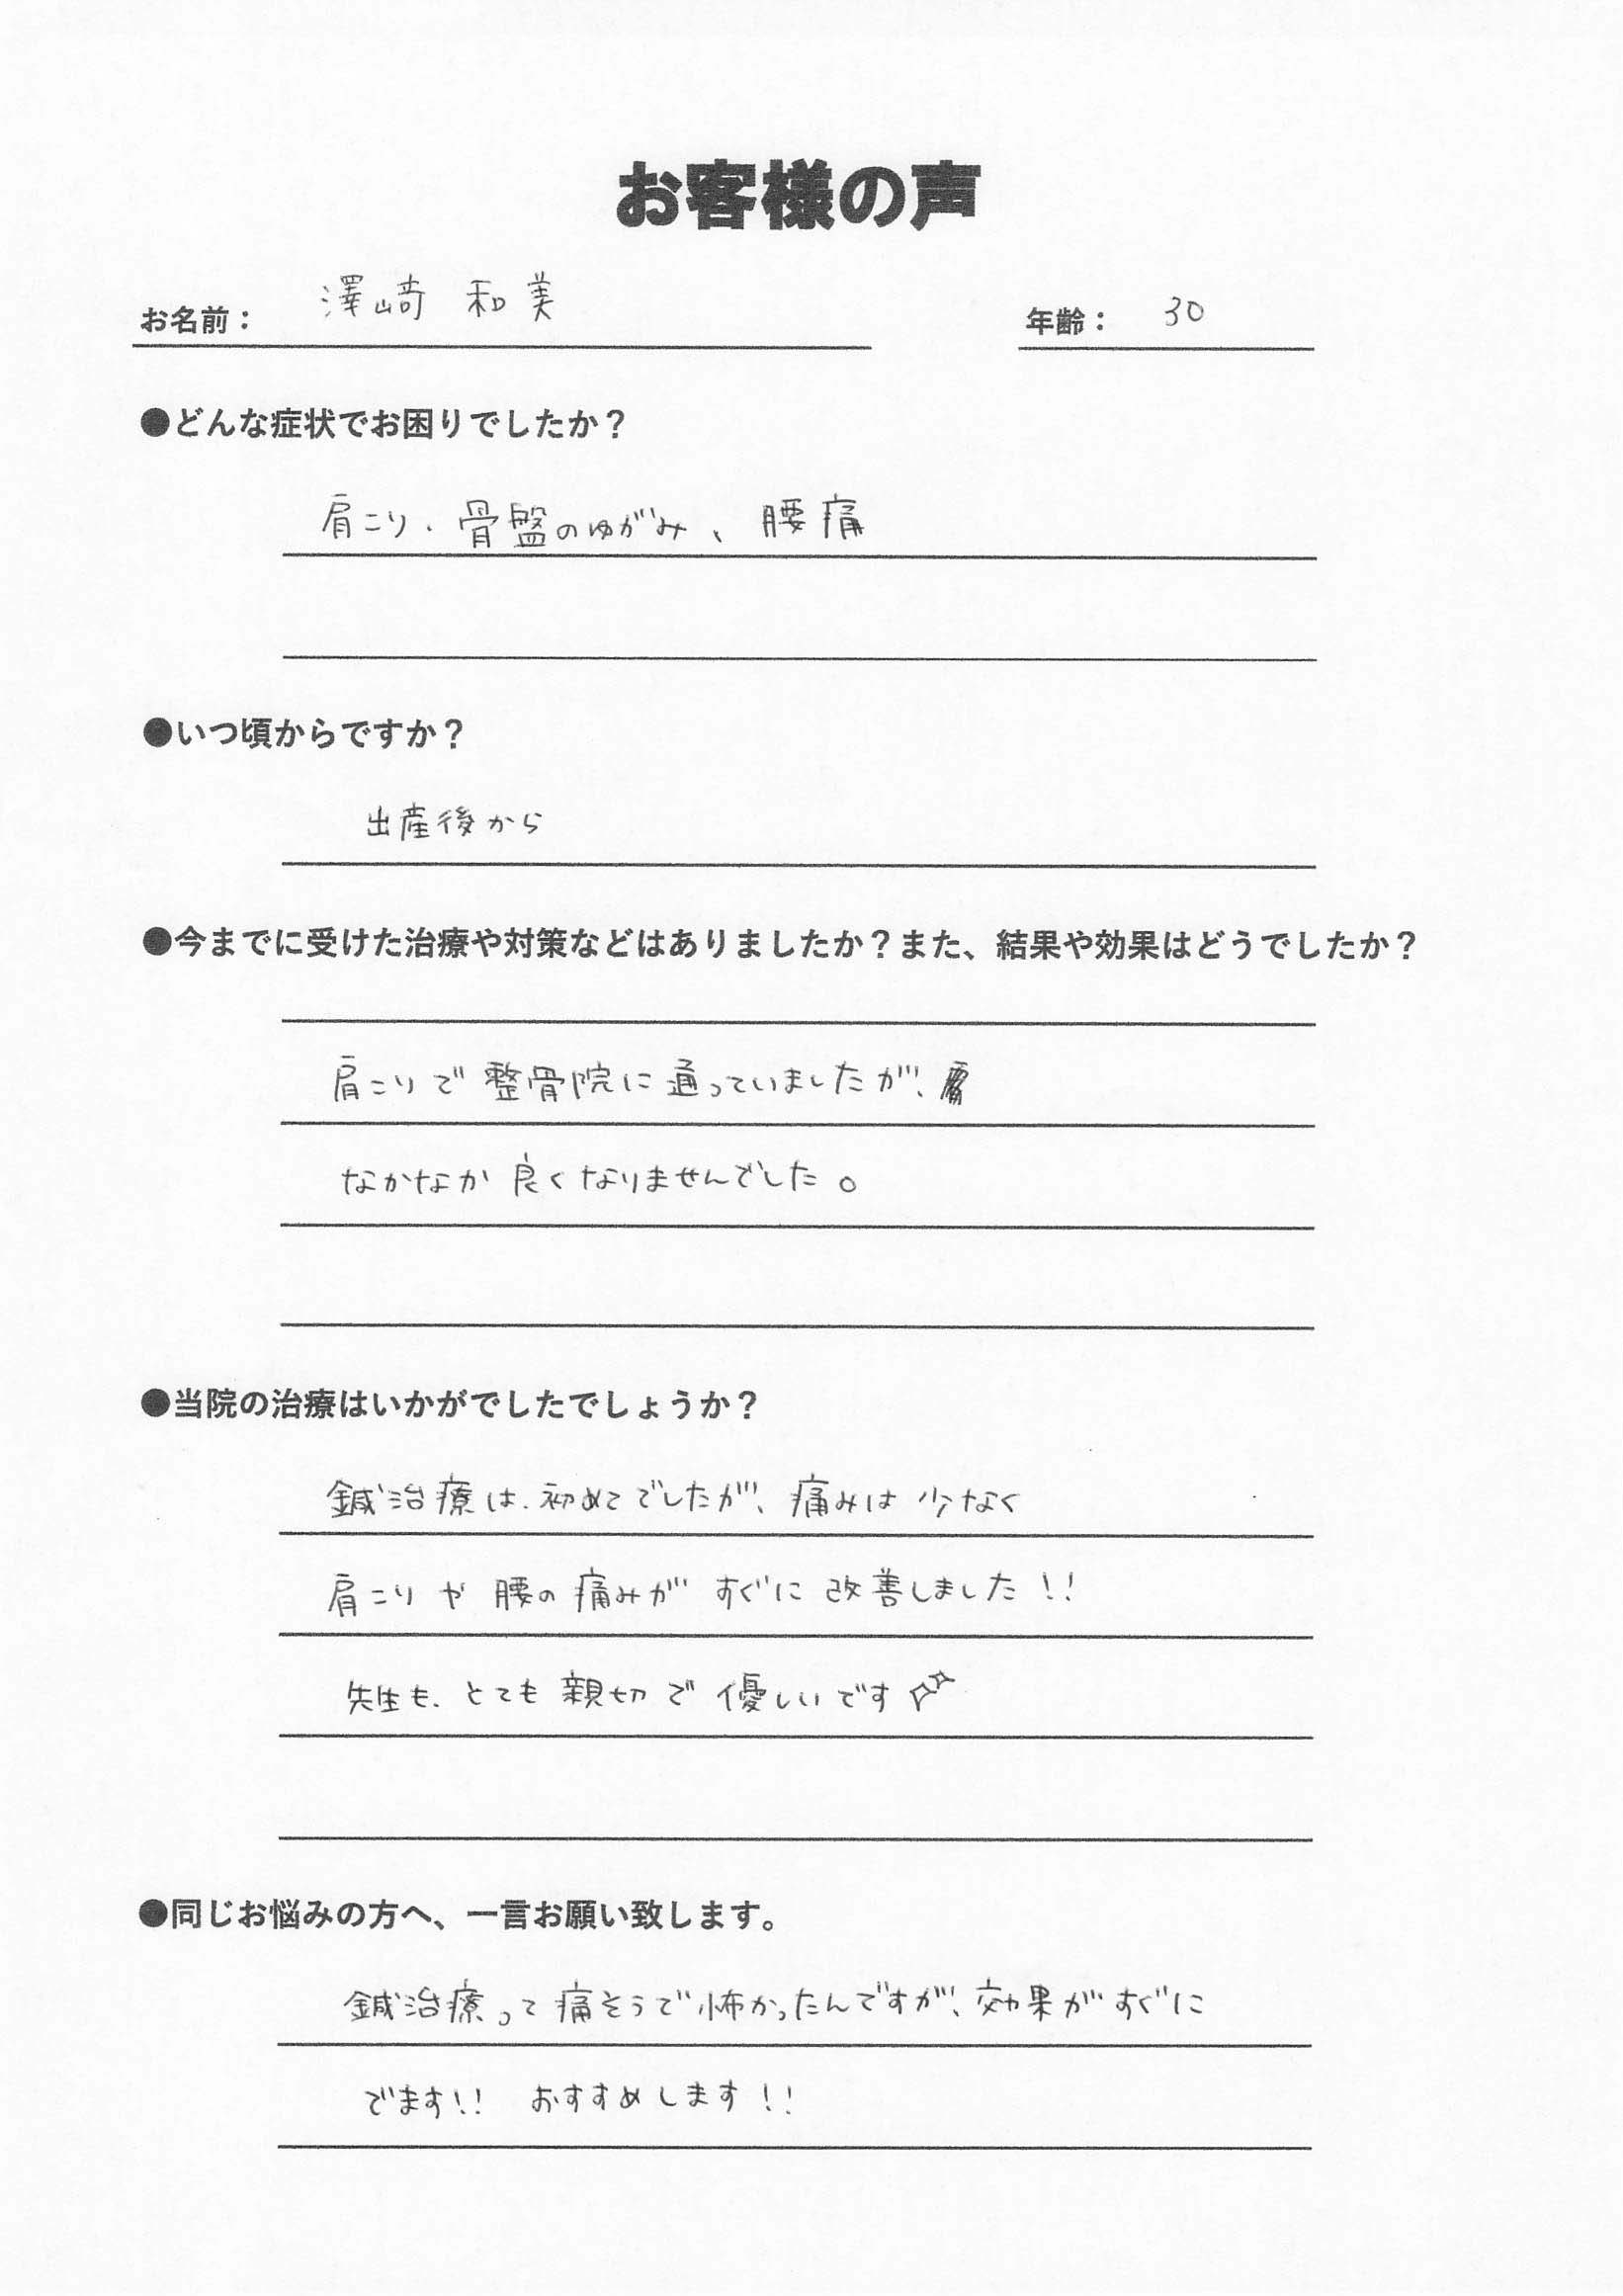 お客様の声
お名前： 澤﨑 和美 年齢： 30
●どんな症状でお困りでしたか？
肩こり、骨盤のゆがみ、腰痛
●いつ頃からですか？
出産後から
●今までに受けた治療や対策などはありましたか？また、結果や効果はどうでしたか？
肩こりで整骨院に通っていましたが、
なかなか良くなりませんでした。
●当院の治療はいかがでしたでしょうか？
鍼治療は、初めてでしたが、痛みは少なく
肩こりや腰の痛みがすぐに改善しました！！
先生も、とても親切で優しいです
●同じお悩みの方へ、一言お願い致します。
鍼治療って痛そうで怖かったんですが、効果がすぐに
でます！！ おすすめします！！